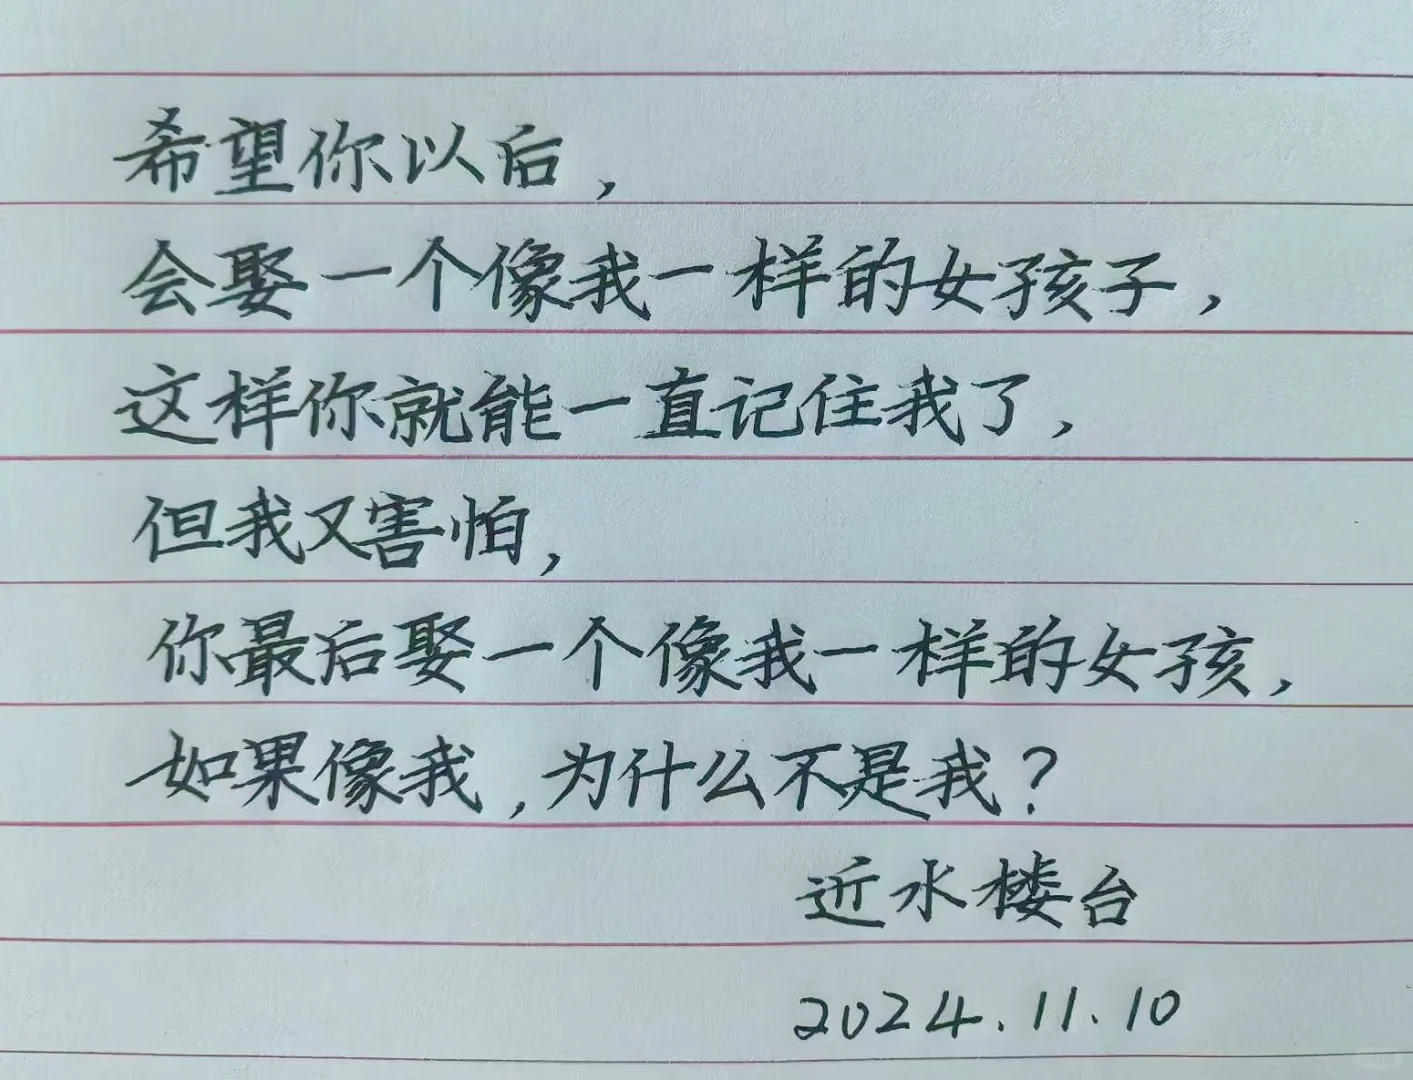 希望你以后，
会娶一个像我一样的女孩子，
这样你就能一直记住我了，
但我又害怕，
你最后娶一个像我一样的女孩，
如果像我，为什么不是我？
近水楼台
2024.11.10